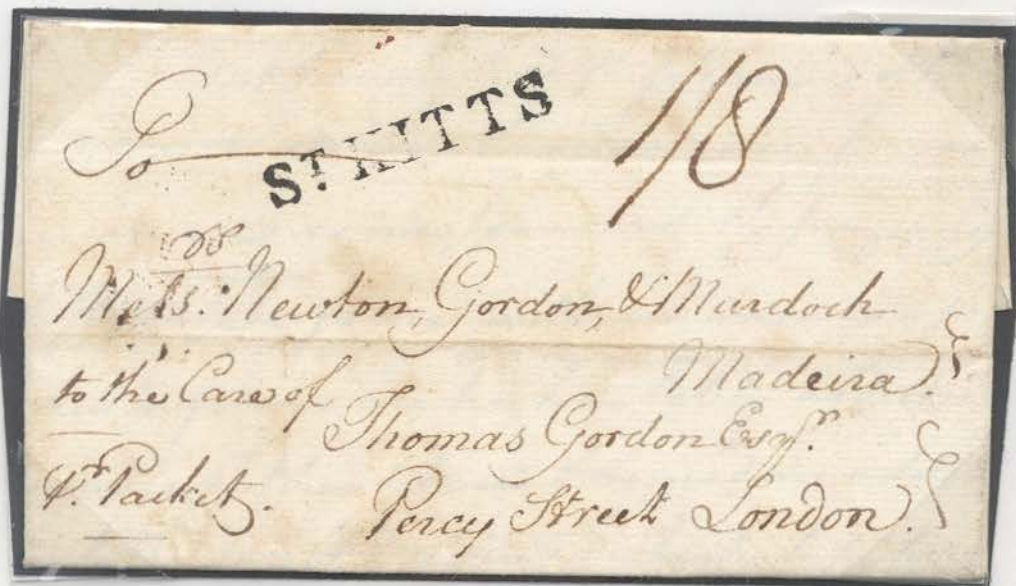 To
ST. KITTS
1/8
Mess.rs Newton, Gordon, & Murdoch
Madeira.
to the Care of
Thomas Gordon Esqr.
pr. Packet.
Percy Street London.